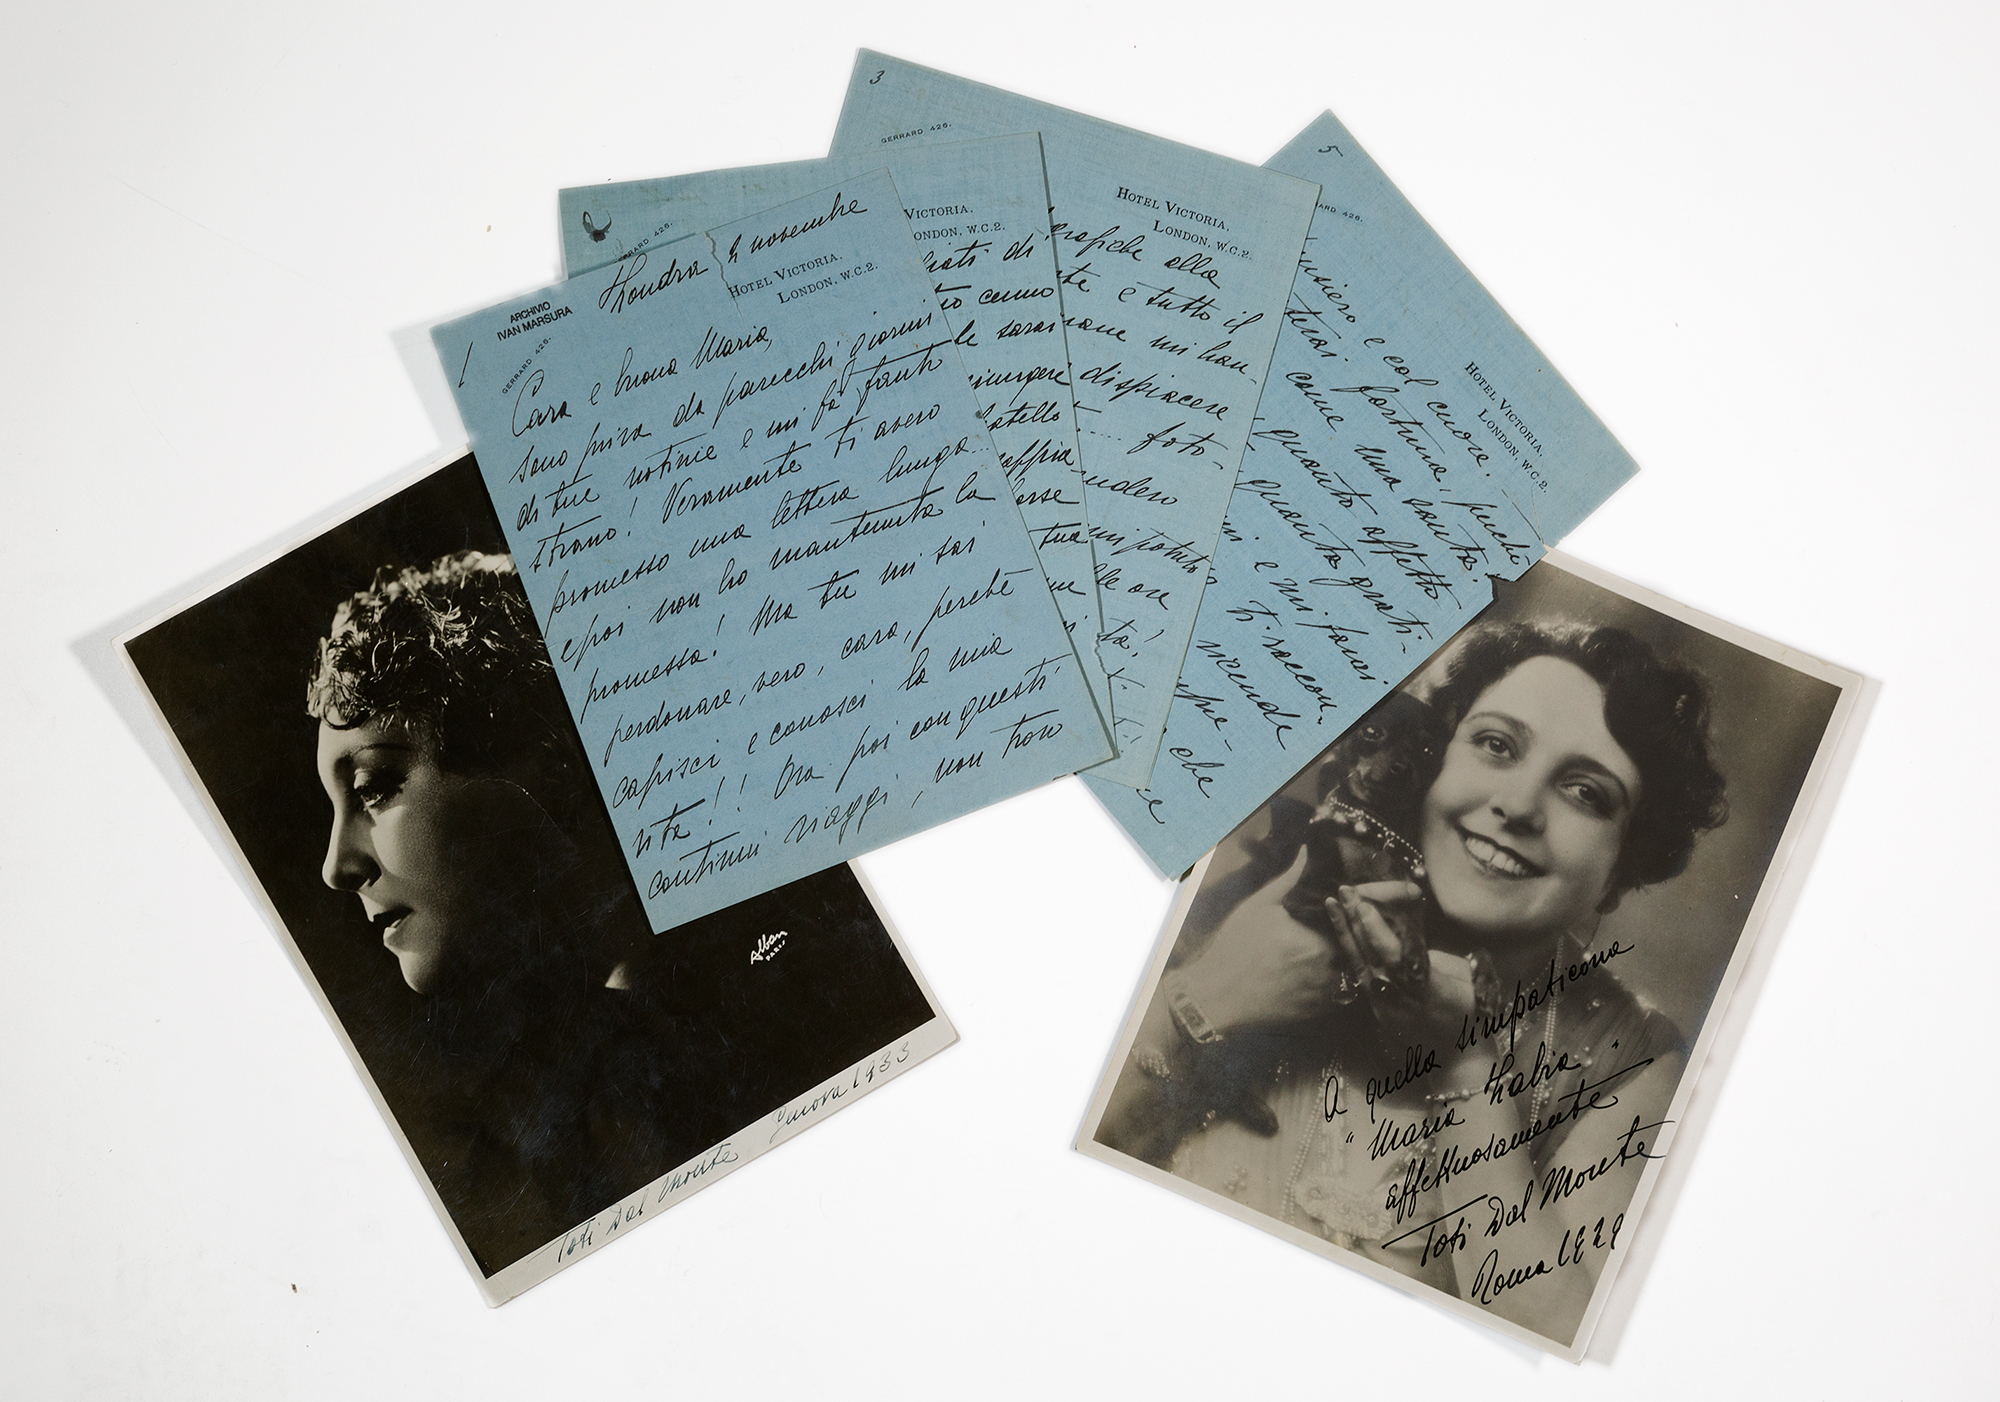 1
ARCHIVIO
IVAN MARSURA
GERRARD 426.
Londra 2 novembre
HOTEL VICTORIA,
LONDON, W.C.2.
Cara e buona Maria,
sono priva da parecchi giorni
di tue notizie e mi fà tanto
strano! Veramente ti avevo
promesso una lettera lunga...
e poi non ho mantenuta la
promessa! Ma tu mi sai
perdonare, vero, cara, perchè
capisci e conosci la mia
vita!! Ora poi con questi
continui viaggi, non trovo
GERRARD 426.
VICTORIA,
LONDON, W.C.2.
di
cenno
le sarai
tua
3
GERRARD 426.
HOTEL VICTORIA,
LONDON, W.C.2.
alla
e tutto il
mi han-
dispiacere
..... foto-
mi potuto
le ore
5
426.
HOTEL VICTORIA,
LONDON, W.C.2.
e col cuore.
fortuna, perchè
come una santa!
quanto affetto
quanta grati-
e mi fanei
ti raccon-
vicende
che
Alban
PARIS
Toti Dal Monte Genova 1933
A quella simpaticona
"Maria Labia"
affettuosamente
Toti Dal Monte
Roma 1929